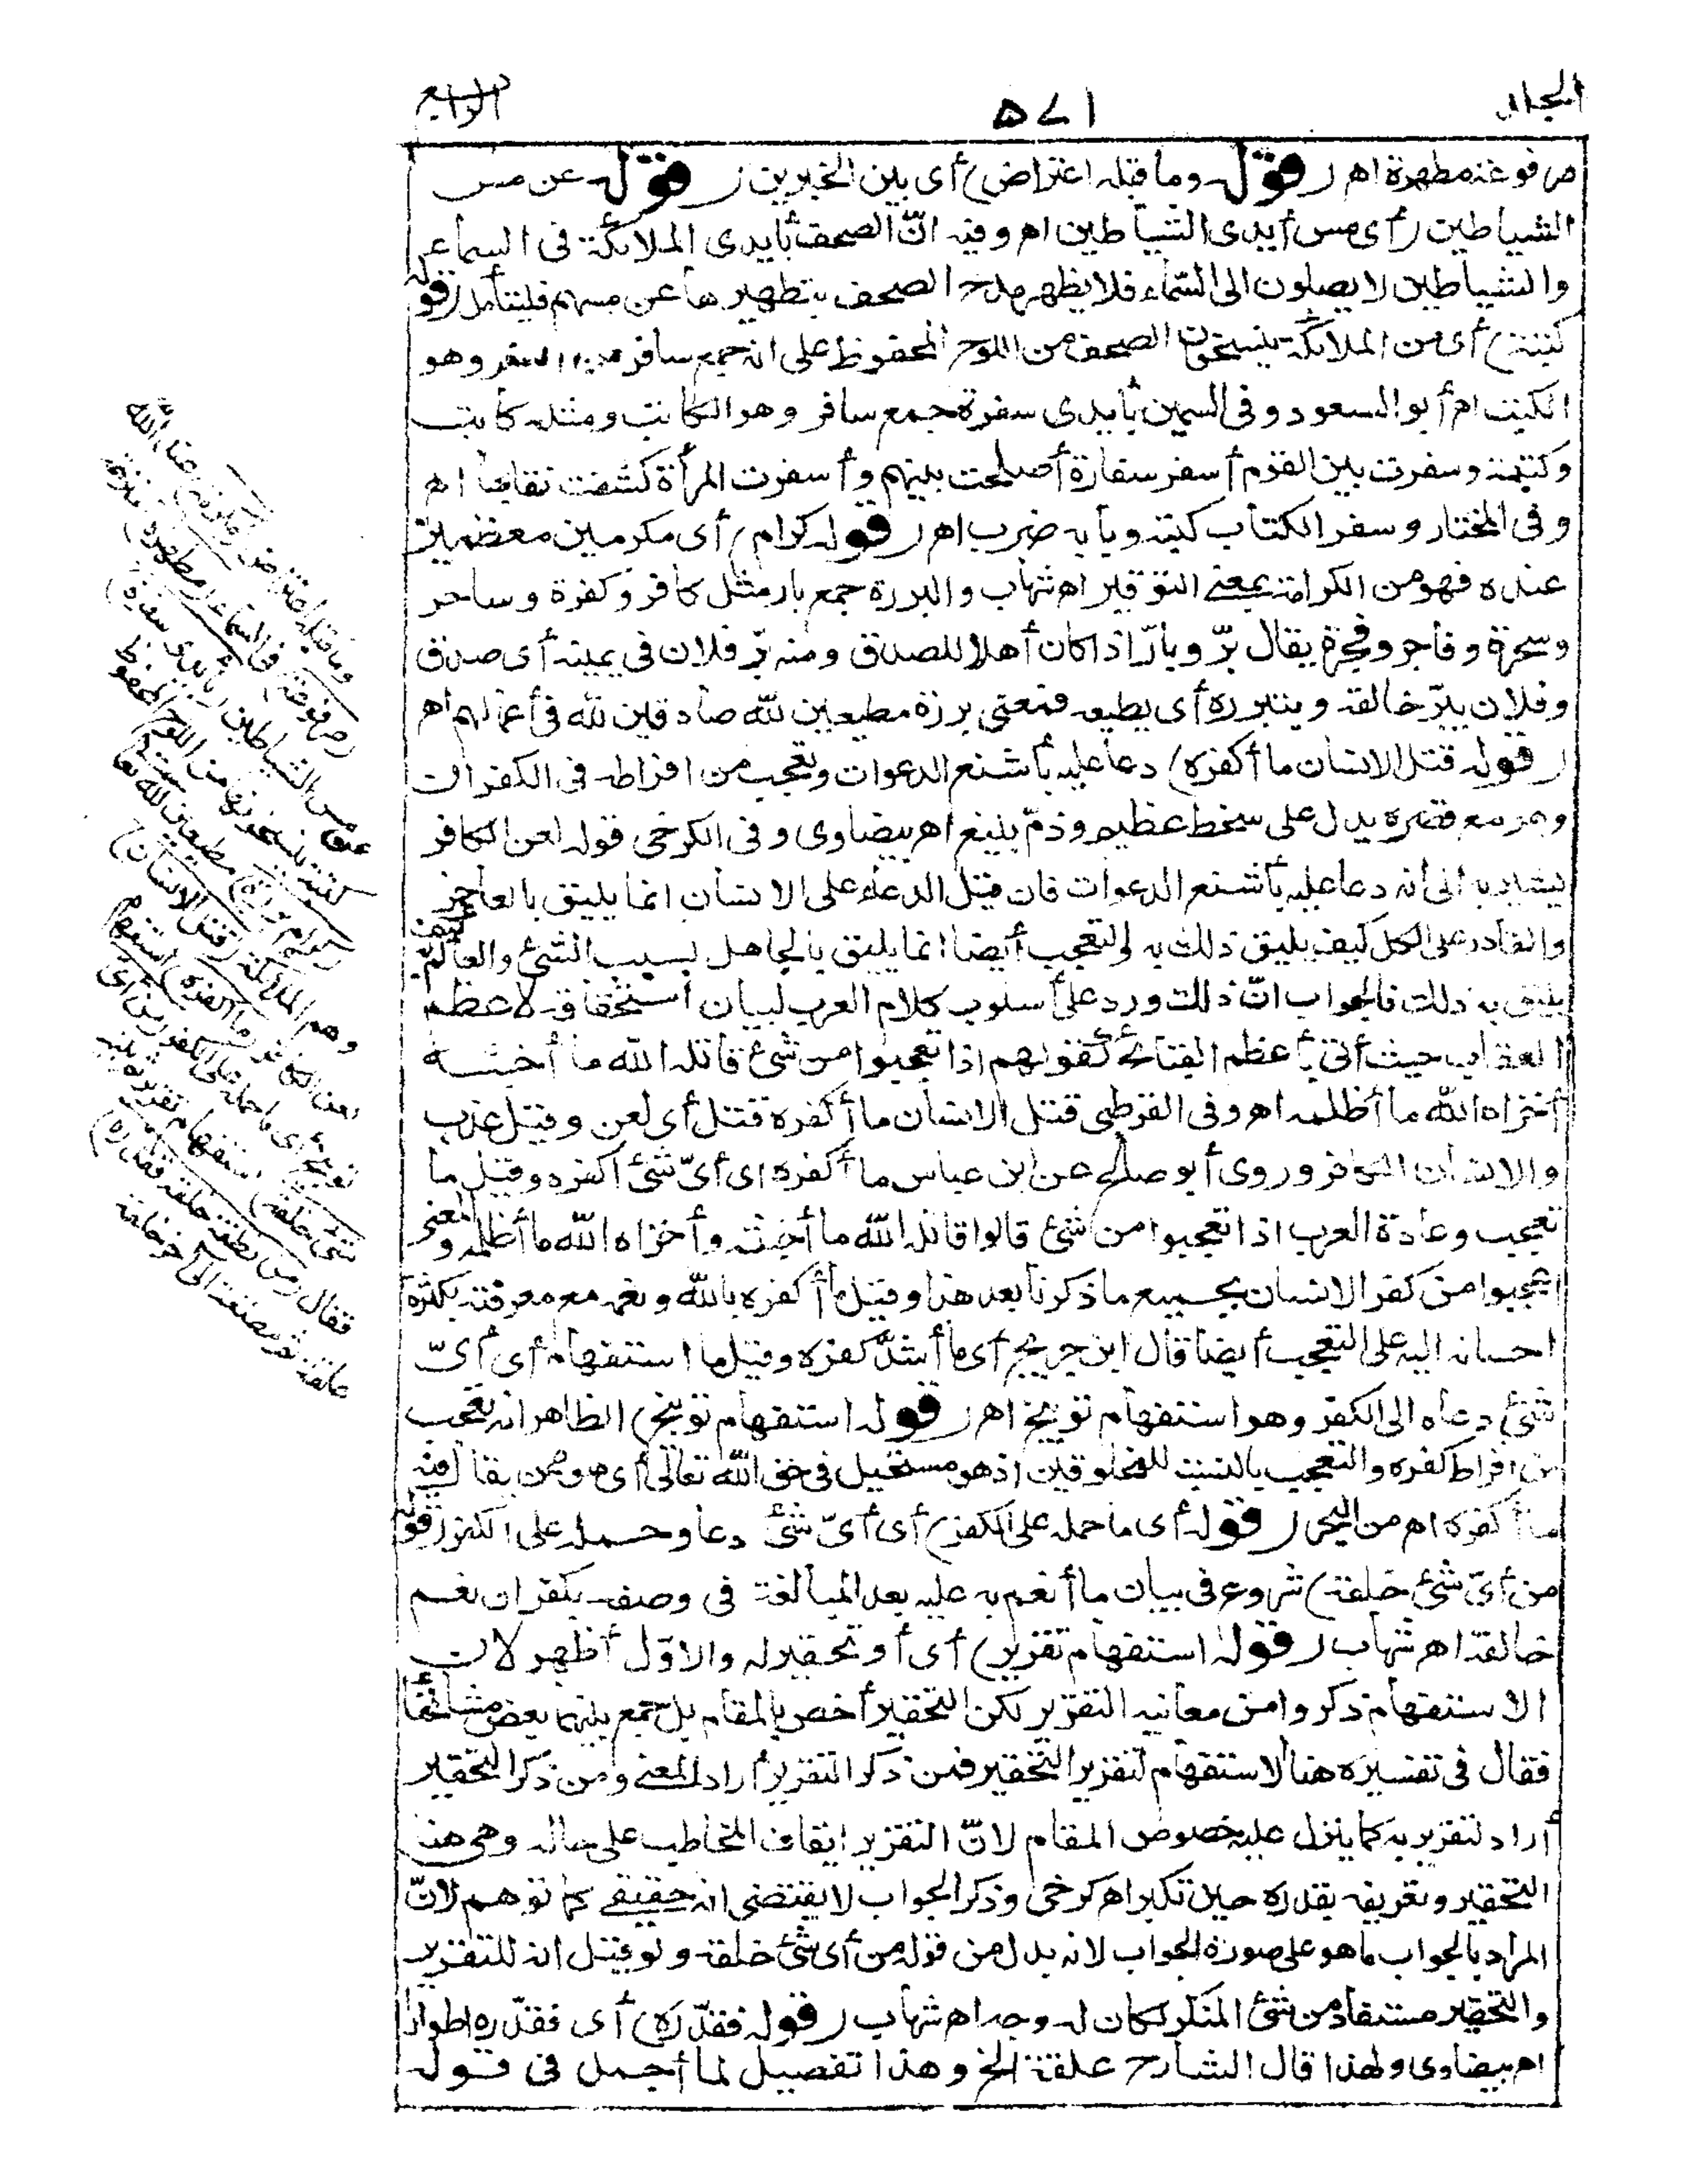 المجلد
٥٧١
الرابع
مرفوعة مطهرة اهـ (قوله وما قبله اعتراض) أى بين الخبرين (قوله عن مس
الشياطين) أى مس أيدى الشياطين اهـ وفيه انّ الصحف بأيدى الملائكة فى السماء
والشياطين لا يصلون الى السّماء فلا يظهر مدح الصحف بتطهيرها عن مسهم فليتأمل (قوله
كتبة) أى من الملائكة ينسخون الصحف من اللوح المحفوظ على انه جمع سافر من السفر وهو
الكتب اهـ أبو السعود وفى السمين بأيدى سفرة جمع سافر وهو الكاتب ومثله كاتب
وكتبة وسفرت بين القوم أسفر سفارة أصلحت بينهم وأسفرت المرأة كشفت نقابها اهـ
وفى المختار وسفر الكتاب كتبه وبابه ضرب اهـ (قوله كرام) أى مكرمين معظمين
عنده فهو من الكرامة بمعنى التوقير اهـ شهاب والبررة جمع بار مثل كافر وكفرة وساحر
وسحرة وفاجر وفجرة يقال برّ وبارّ اذا كان أهلا للصدق ومنه برّ فلان فى يمينه أى صدق
وفلان يبرّ خالقه ويتبرره أى يطيعه فمعنى بررة مطيعين لله صادقين لله فى أعمالهم اهـ
(قوله قتل الانسان ما أكفره) دعا عليه بأشنع الدعوات وتعجب من افراطه فى الكفران
وهو مع قصره يدل على سخط عظيم وذمّ بليغ اهـ بيضاوى وفى الكرخى قوله لعن الكافر
يشير به الى أنه دعا عليه بأشنع الدعوات فان قيل الدعاء على الانسان انما يليق بالعاجز
والقادر على الكل كيف يليق ذلك به والتعجب أيضا انما يليق بالجاهل بسبب الشئ والعالم به كيف
يليق به ذلك فالجواب انّ ذلك ورد على أسلوب كلام العرب لبيان استحقاقه لاعظم
العقاب حيث أتى بأعظم القبائح كقولهم اذا تعجبوا من شئ قاتله الله ما أخبثه
أخزاه الله ما أظلمه اهـ وفى القرطبى قتل الانسان ما أكفره قتل أى لعن وقيل عذب
والانسان الكافر وروى أبو صالح عن ابن عباس ما أكفره أى أىّ شئ أكفره وقيل ما
تعجب وعادة العرب اذا تعجبوا من شئ قالوا قاتله الله ما أخبثه وأخزاه الله ما أظلمه والمعنى
اعجبوا من كفر الانسان بجميع ما ذكرنا بعد هذا وقيل ما أكفره بالله ونعمه مع معرفته بكثرة
احسانه اليه على التعجب أيضا قال ابن جريج أى ما أشدّ كفره وقيل ما استفهام أى أىّ
شئ دعاه الى الكفر وهو استفهام توبيخ اهـ (قوله استفهام توبيخ) الظاهر انه تعجب
من افراط كفره والتعجب بالنسبة للمخلوقين اذ هو مستحيل فى حق الله تعالى أى هو ممن يقال فيه
ما أكفره اهـ من البحر (قوله أى ما حمله على الكفر) أى أىّ شئ دعا وحمله على الكفر (قوله
من أىّ شئ خلقه) شروع فى بيان ما أنعم به عليه بعد المبالغة فى وصفه بكفران نعم
خالقه اهـ شهاب (قوله استفهام تقرير) أى أو تحقير له والاوّل أظهر لان
الاستفهام ذكروا من معانيه التقرير لكن التحقير أخص بالمقام بل جمع بينهما بعض مشائخنا
فقال فى تفسيره هنا الاستفهام لتقرير التحقير فمن ذكر التقرير أراد المعنى ومن ذكر التحقير
أراد لتقرير به كما ينزل عليه خصوص المقام لانّ التقرير ايقاف المخاطب على حاله وهى هنا
التحقير وتعريفه بقدره حين تكبر اهـ كرخى وذكر الجواب لا يقتضى انه حقيقى كما توهم لانّ
المراد بالجواب ما هو على صورة الجواب لانه بدل من قوله من أى شئ خلقه ولو قيل انه للتقرير
والتحقير مستفاد من شئ المنكر لكان له وجه اهـ شهاب (قوله فقدّره) أى فقدّره اطوارا
اهـ بيضاوى ولهذا قال الشارح علقة الخ وهذا تفصيل لما أجمل فى قوله
وما قبله اعتراض
(مرفوعة) فى السماء (مطهرة) منزهة
عن مس الشياطين (بأيدى سفرة)
كتبة ينسخونها من اللوح المحفوظ
(كرام بررة) مطيعين لله تعالى
وهم الملائكة (قتل الانسان)
لعن الكافر (ما أكفره) استفهام
توبيخ أى ما حمله على الكفر (من أى
شئ خلقه) استفهام تقرير ثم بينه
فقال (من نطفة خلقه فقدره)
علقة ثم مضغة الى آخر خلقه